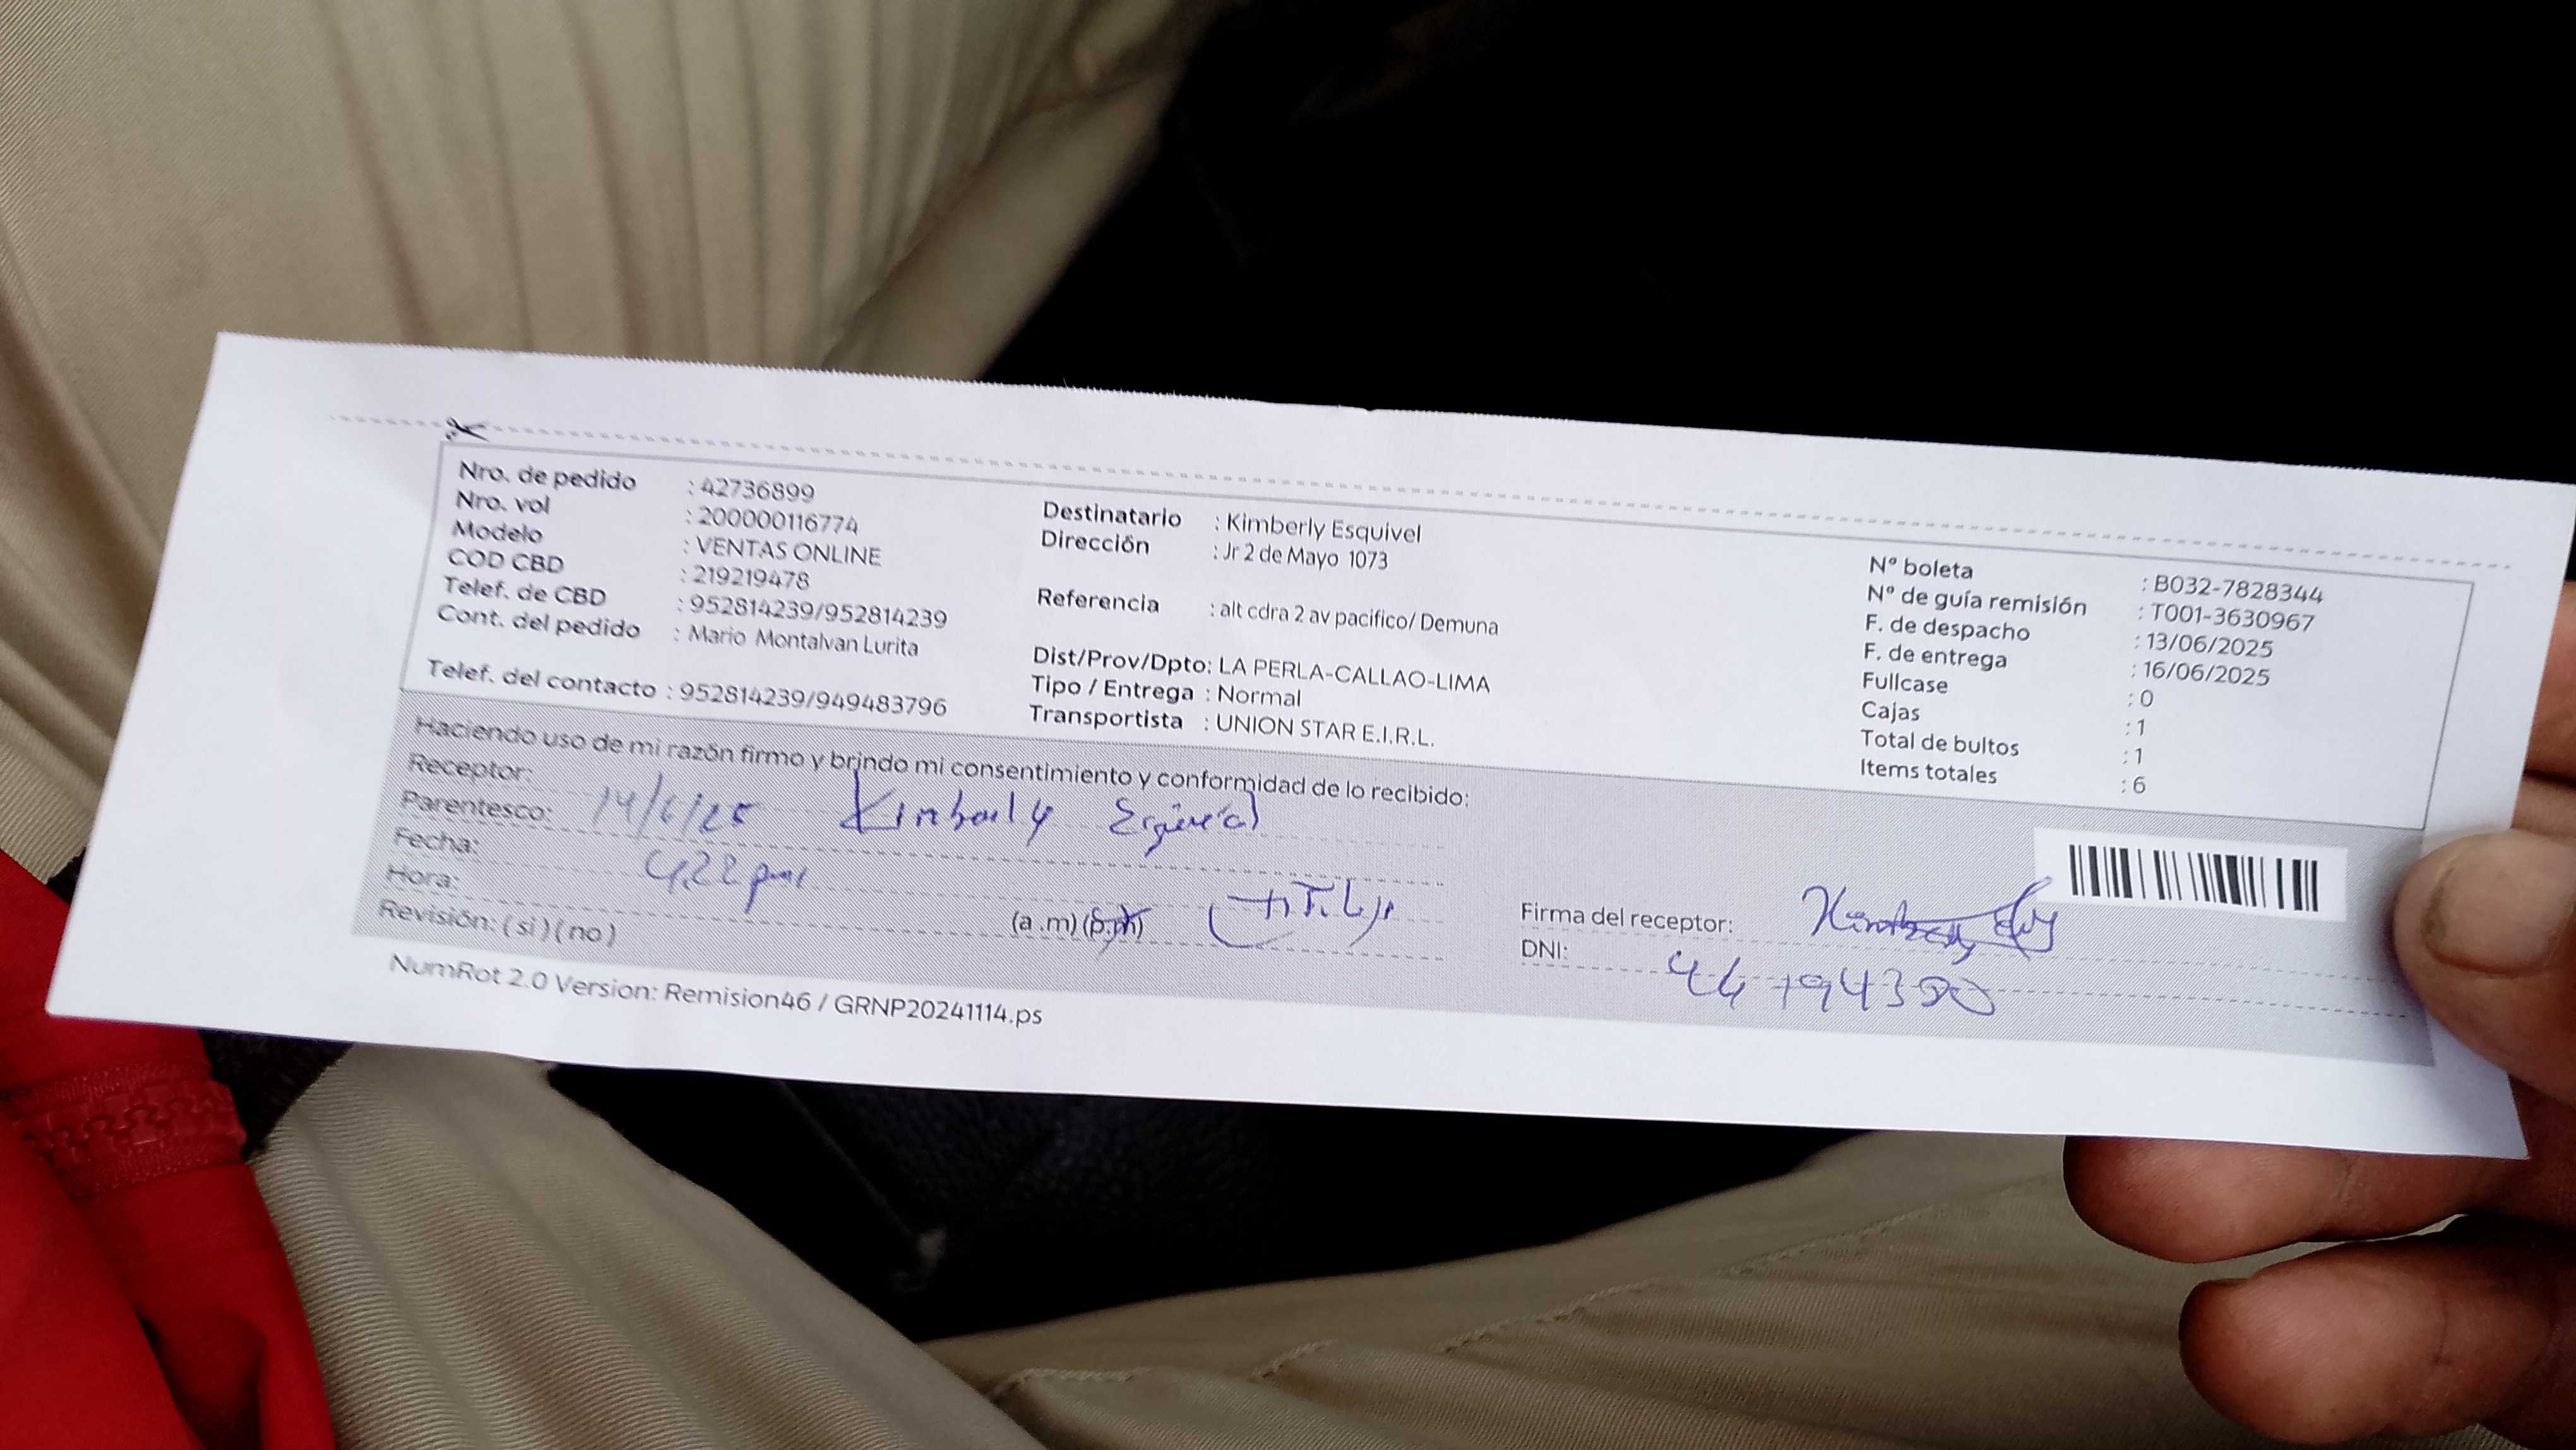 Nro. de pedido : 42736899
Nro. vol : 200000116774
Modelo : VENTAS ONLINE
COD CBD : 219219478
Telef. de CBD : 952814239/952814239
Cont. del pedido : Mario Montalvan Lurita
Telef. del contacto : 952814239/949483796
Destinatario : Kimberly Esquivel
Dirección : Jr 2 de Mayo 1073
Referencia : alt cdra 2 av pacifico/ Demuna
Dist/Prov/Dpto: LA PERLA-CALLAO-LIMA
Tipo / Entrega : Normal
Transportista : UNION STAR E.I.R.L.
Nº boleta : B032-7828344
Nº de guía remisión : T001-3630967
F. de despacho : 13/06/2025
F. de entrega : 16/06/2025
Fullcase : 0
Cajas : 1
Total de bultos : 1
Items totales : 6
Haciendo uso de mi razón firmo y brindo mi consentimiento y conformidad de lo recibido:
Receptor: Kimberly Esquivel
Parentesco: 14/6/25
Fecha:
Hora: 4,22 pm
(a .m) (p.m)
Revisión: ( si ) ( no )
Firma del receptor:
DNI:
NumRot 2.0 Version: Remision46 / GRNP20241114.ps